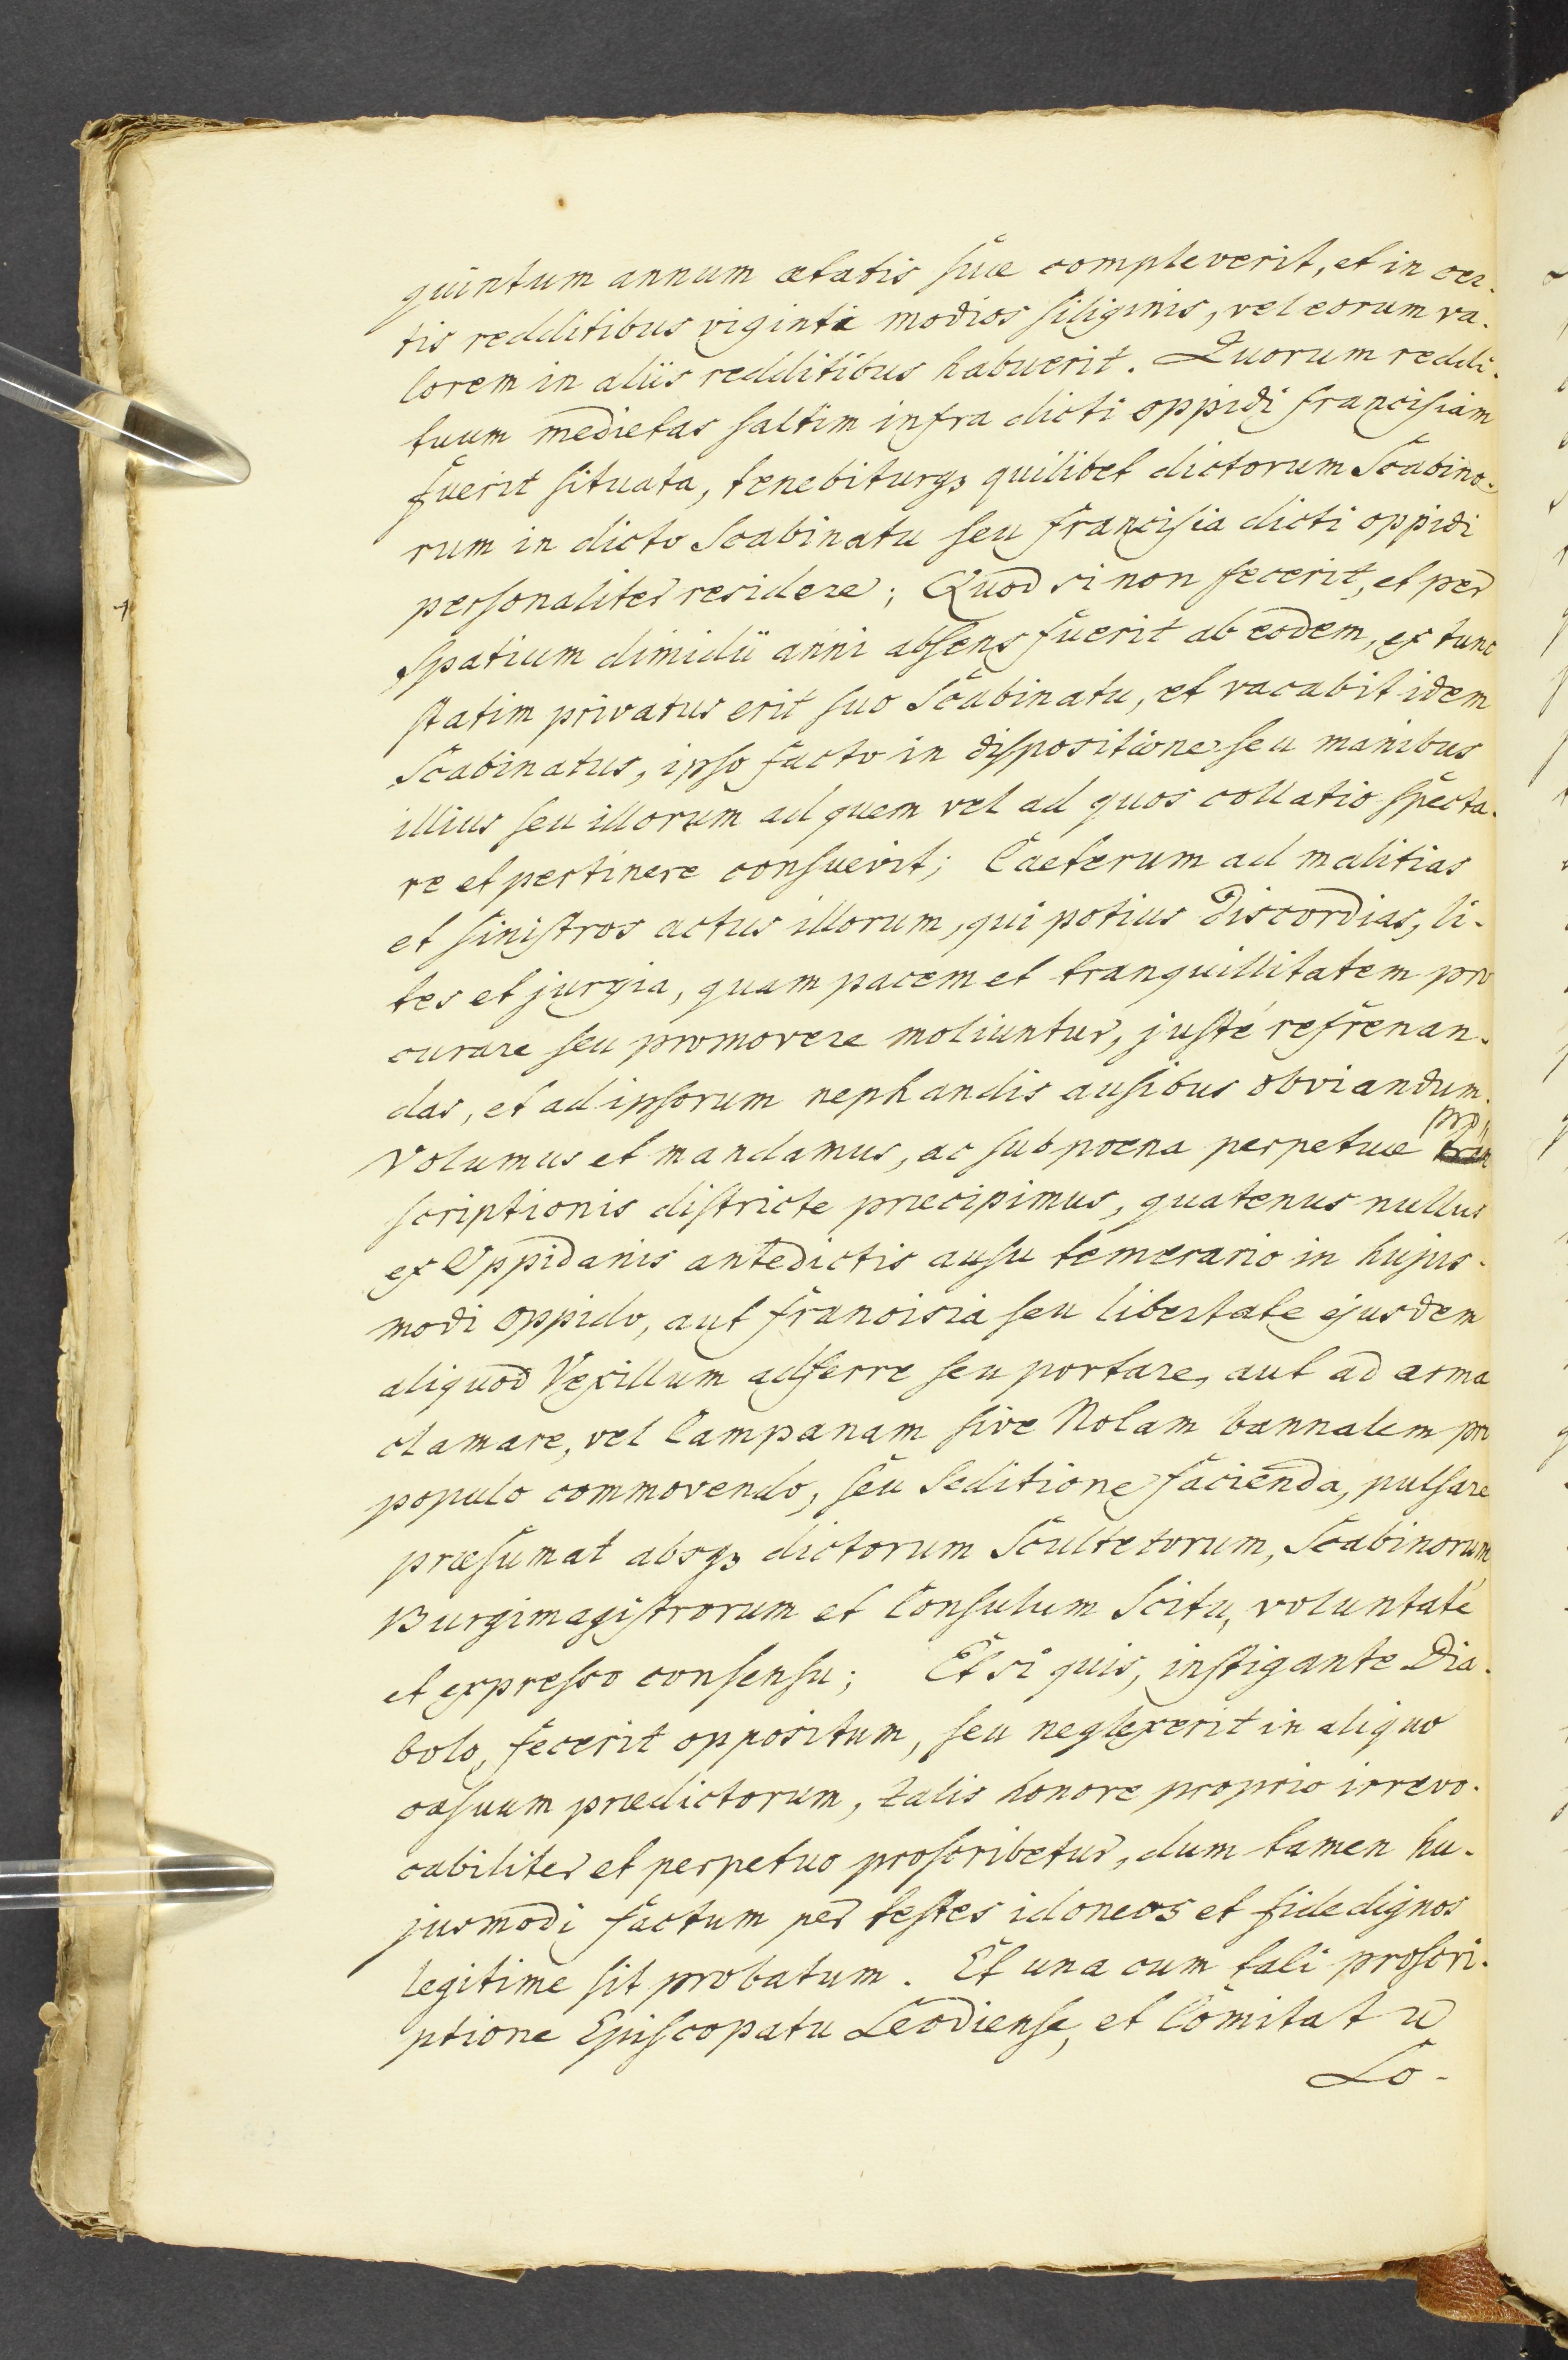 quintum annum ætatis suæ compleverit, et in cer-
tis redditibus viginti modios siliginis, vel eorum va-
lorem in aliis redditibus habuerit. Quorum reddi-
tuum medietas saltim infra dicti oppidi francisiam
fuerit situata, tenebiturqꝫ quilibet dictorum Scabino-
rum in dicto Scabinatu seu francisia dicti oppidi
personaliter residere; Quod si non fecerit, et per
spatium dimidii anni absens fuerit ab eodem, ex tunc
statim privatus erit suo Scabinatu, et vacabit idem
Scabinatus, ipso facto in dispositione seu manibus
illius seu illorum ad quem vel ad quos collatio specta-
re et pertinere consuevit; Caeterum ad malitias
et sinistros actus illorum, qui potius discordias, li-
tes et jurgia, quam pacem et tranquillitatem pro
curare seu promovere moliuntur, justé refrenan-
das, et ad ipsorum nephandis ausibus obviandum.
pro
Volumus et mandamus, ac sub poena perpetuæ
scriptionis districte præcipimus, quatenus nullus
ex Oppidanis antedictis ausu temerario in hujus-
modi oppido, aut francisia seu libertate ejusdem
aliquod Vexillum adferre seu portare, aut ad arma
clamare, vel Campanam sive Nolam bannalem pro
populo commovendo, seu Seditione facienda, pulsare
præsumat absqꝫ dictorum Scultetorum, Scabinorum,
Burgimagistrorum et Consulum Scitu, voluntate
et expresso consensu; Et si quis, instigante Dia-
bolo, fecerit oppositum, seu neglexerit in aliquo
casuum prædictorum, talis honore proprio irrevo-
cabiliter et perpetuo proscribetur, dum tamen hu-
jusmodi factum per testes idoneos et fide dignos
legitime sit probatum. Et una cum tali proscri-
ptione Episcopatu Leodiense, et Comitatu
Lo-